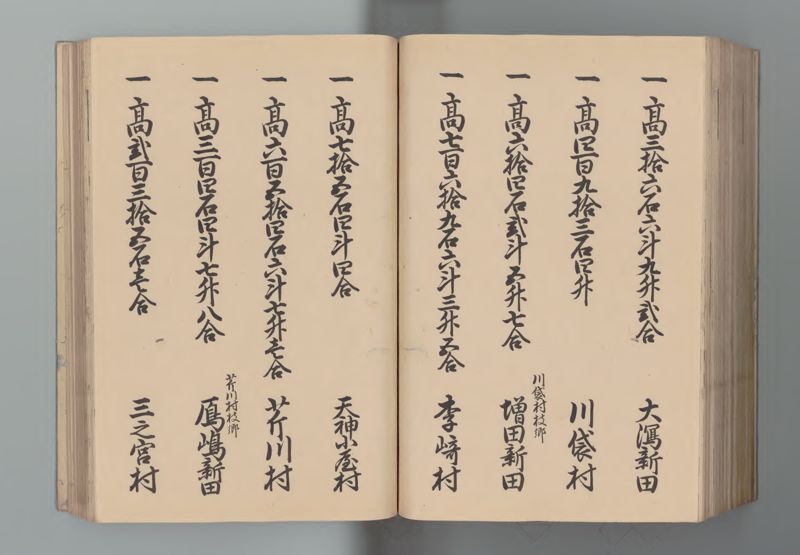 一 高三拾六石六斗九升弐合 大潟新田
一 高四百九拾三石四升 川袋村
一 高六拾四石弐斗五升七合 川袋村枝郷 増田新田
一 高七百六拾九石六斗三升五合 李崎村
一 高七拾五石四斗四合 天神小屋村
一 高六百五拾四石六斗七升壱合 芹川村
一 高三百四石四斗七升八合 芹川村枝郷 鳫嶋新田
一 高弐百三拾五石壱合 三之宮村